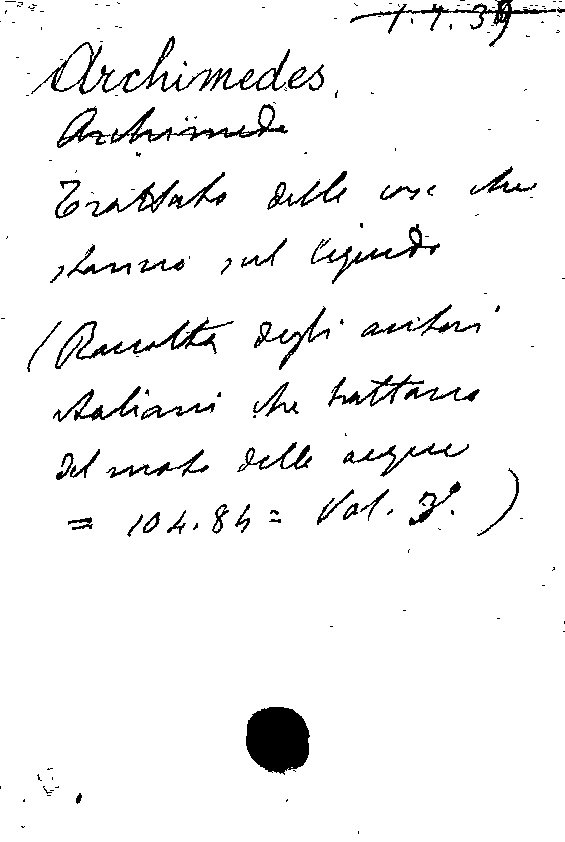 1.7.39
Archimedes.
Archimede
Trattato delle cose che
stanno sul liquido
(Raccolta degli autori
italiani che trattano
del moto delle acque
= 104.84 = Vol. 3°. )